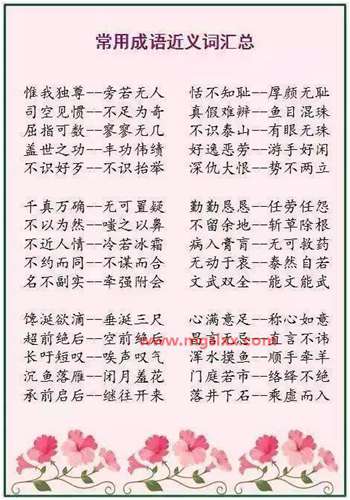 常用成语近义词汇总
惟我独尊--旁若无人 恬不知耻--厚颜无耻
司空见惯--不足为奇 真假难辨--鱼目混珠
屈指可数--寥寥无几 不识泰山--有眼无珠
盖世之功--丰功伟绩 好逸恶劳--游手好闲
不识好歹--不识抬举 深仇大恨--势不两立
千真万确--无可置疑 勤勤恳恳--任劳任怨
不以为然--嗤之以鼻 不留余地--斩草除根
不近人情--冷若冰霜 病入膏肓--无可救药
不约而同--不谋而合 无动于衷--泰然自若
名不副实--牵强附会 文武双全--能文能武
馋涎欲滴--垂涎三尺 心满意足--称心如意
超前绝后--空前绝后 直言不讳
长吁短叹--唉声叹气 浑水摸鱼--顺手牵羊
沉鱼落雁--闭月羞花 门庭若市--络绎不绝
承前启后--继往开来 落井下石--乘虚而入